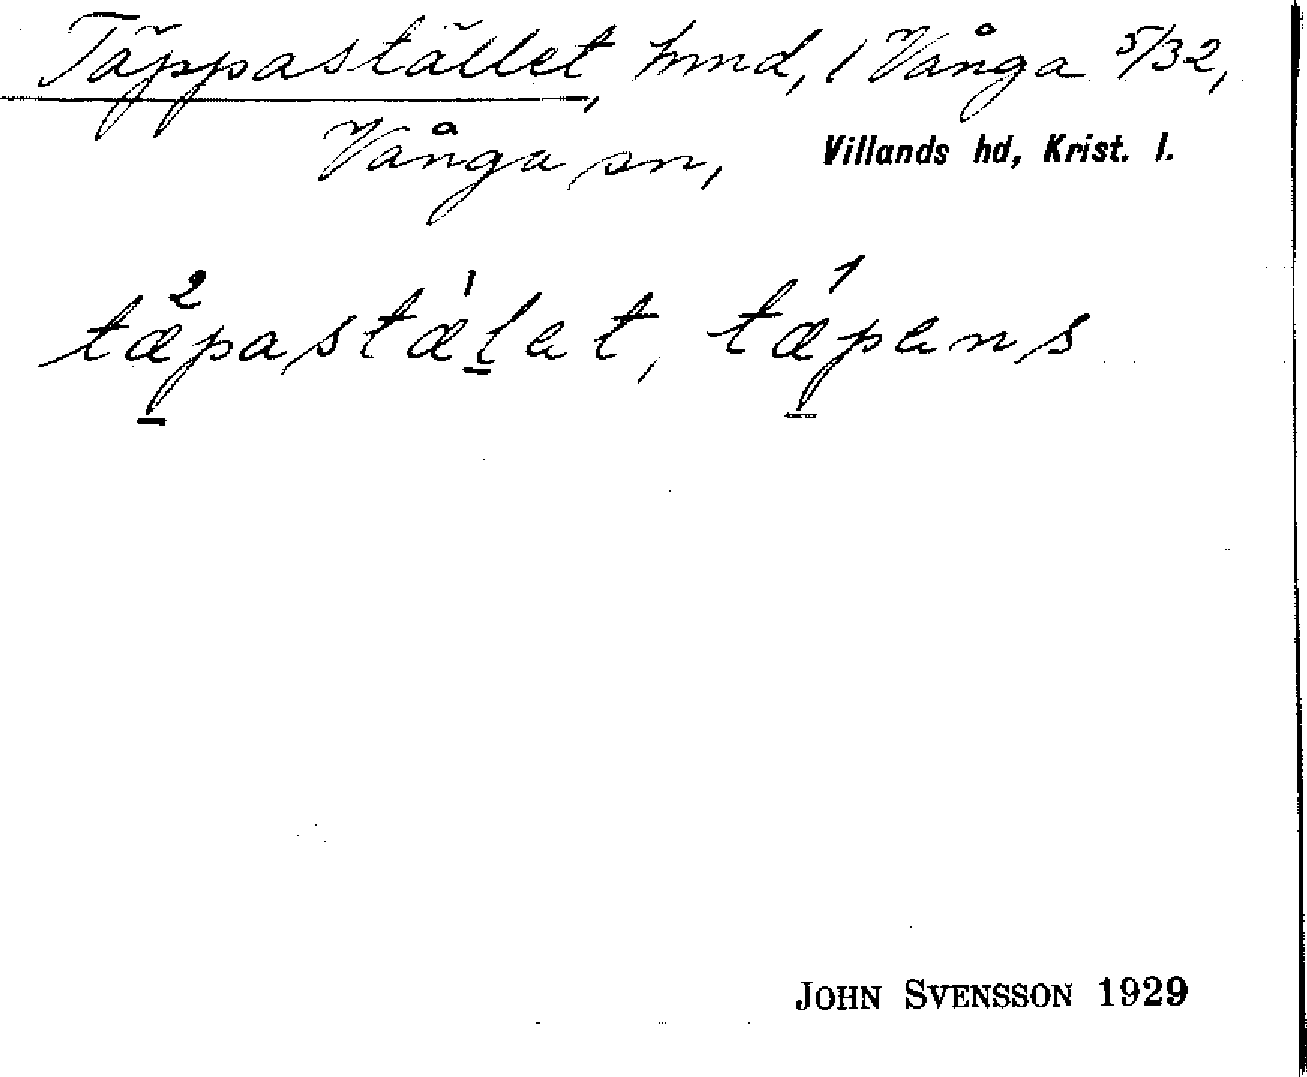 Täppastället, hmd, 1 Vånga 5/32,
Vånga sn, Villands hd, Krist. l.
tæ²pastæ¹let, tæ¹pens
JOHN SVENSSON 1929